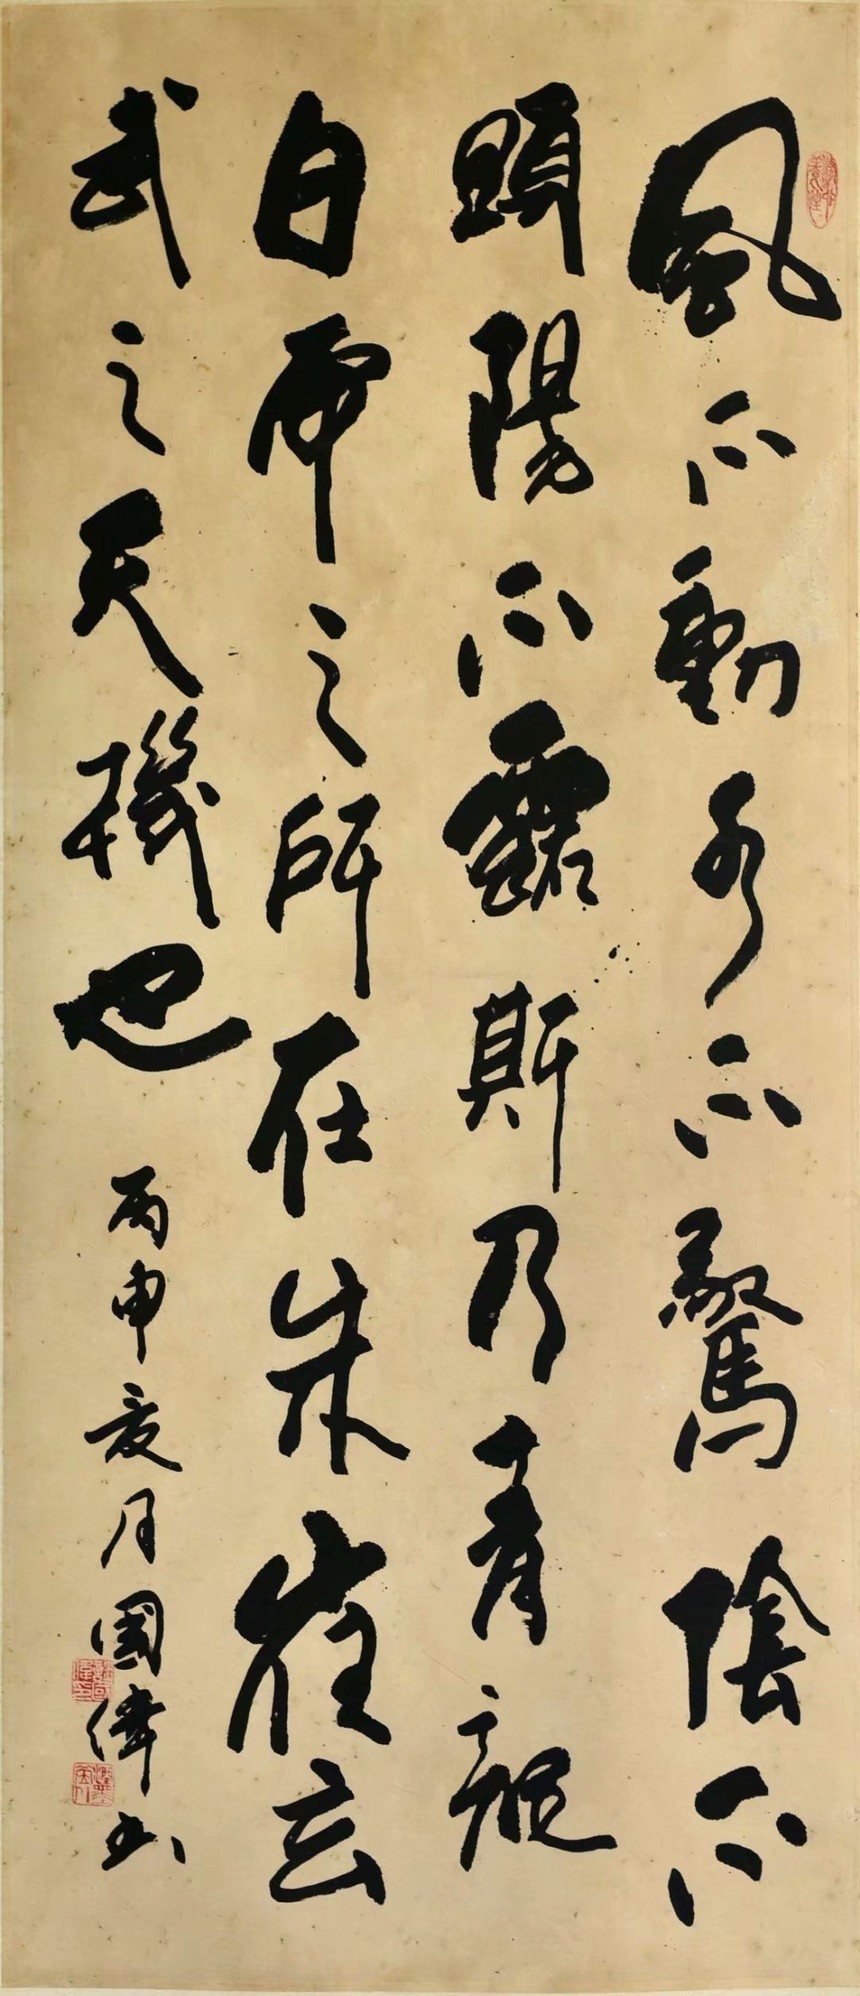 風不動水不驚陰不
顕陽不露斯乃青龍
白虎之所在朱雀玄
武之天機也
丙申夏月國偉书